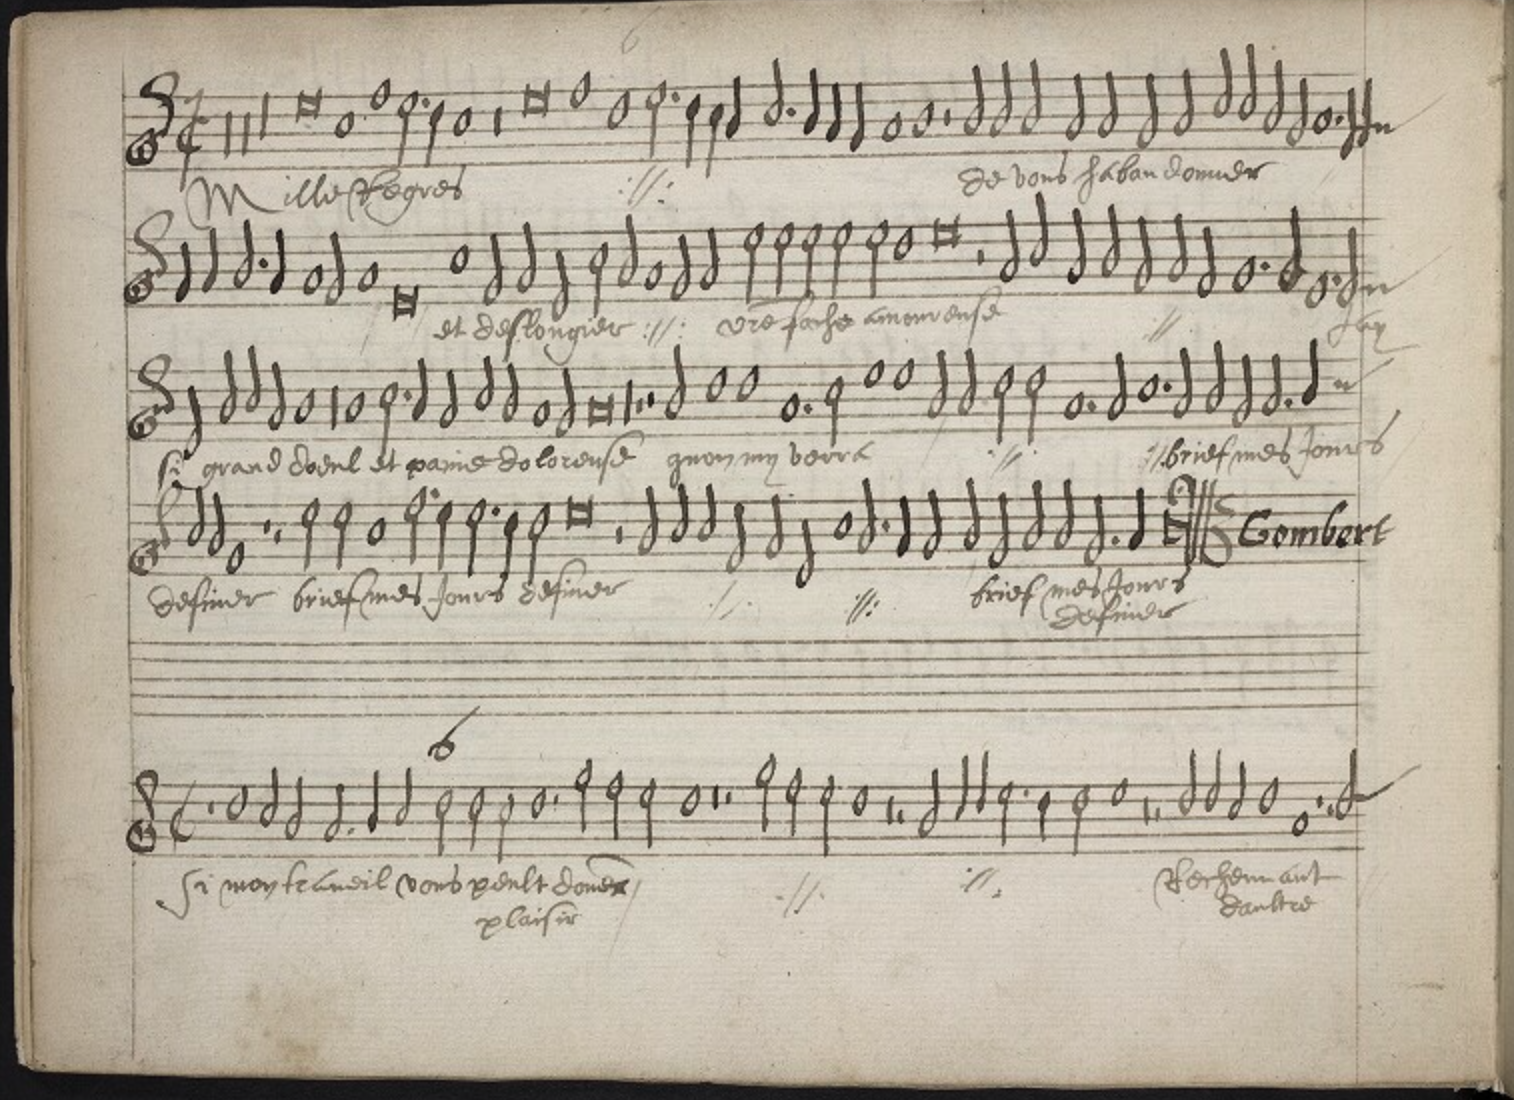 Mille Regres :||: de vous habandonner
et deslongier :||: vre fache amoureuse || Jay
si grand doeul et paine doloreuse quon my verra || :||brief mes Jours
Gombert
definer brief mes Jours definer :||: brief mes Jours
definer
6
Si mon traueil vous peult doner || || Recheuant
plaisir daultre